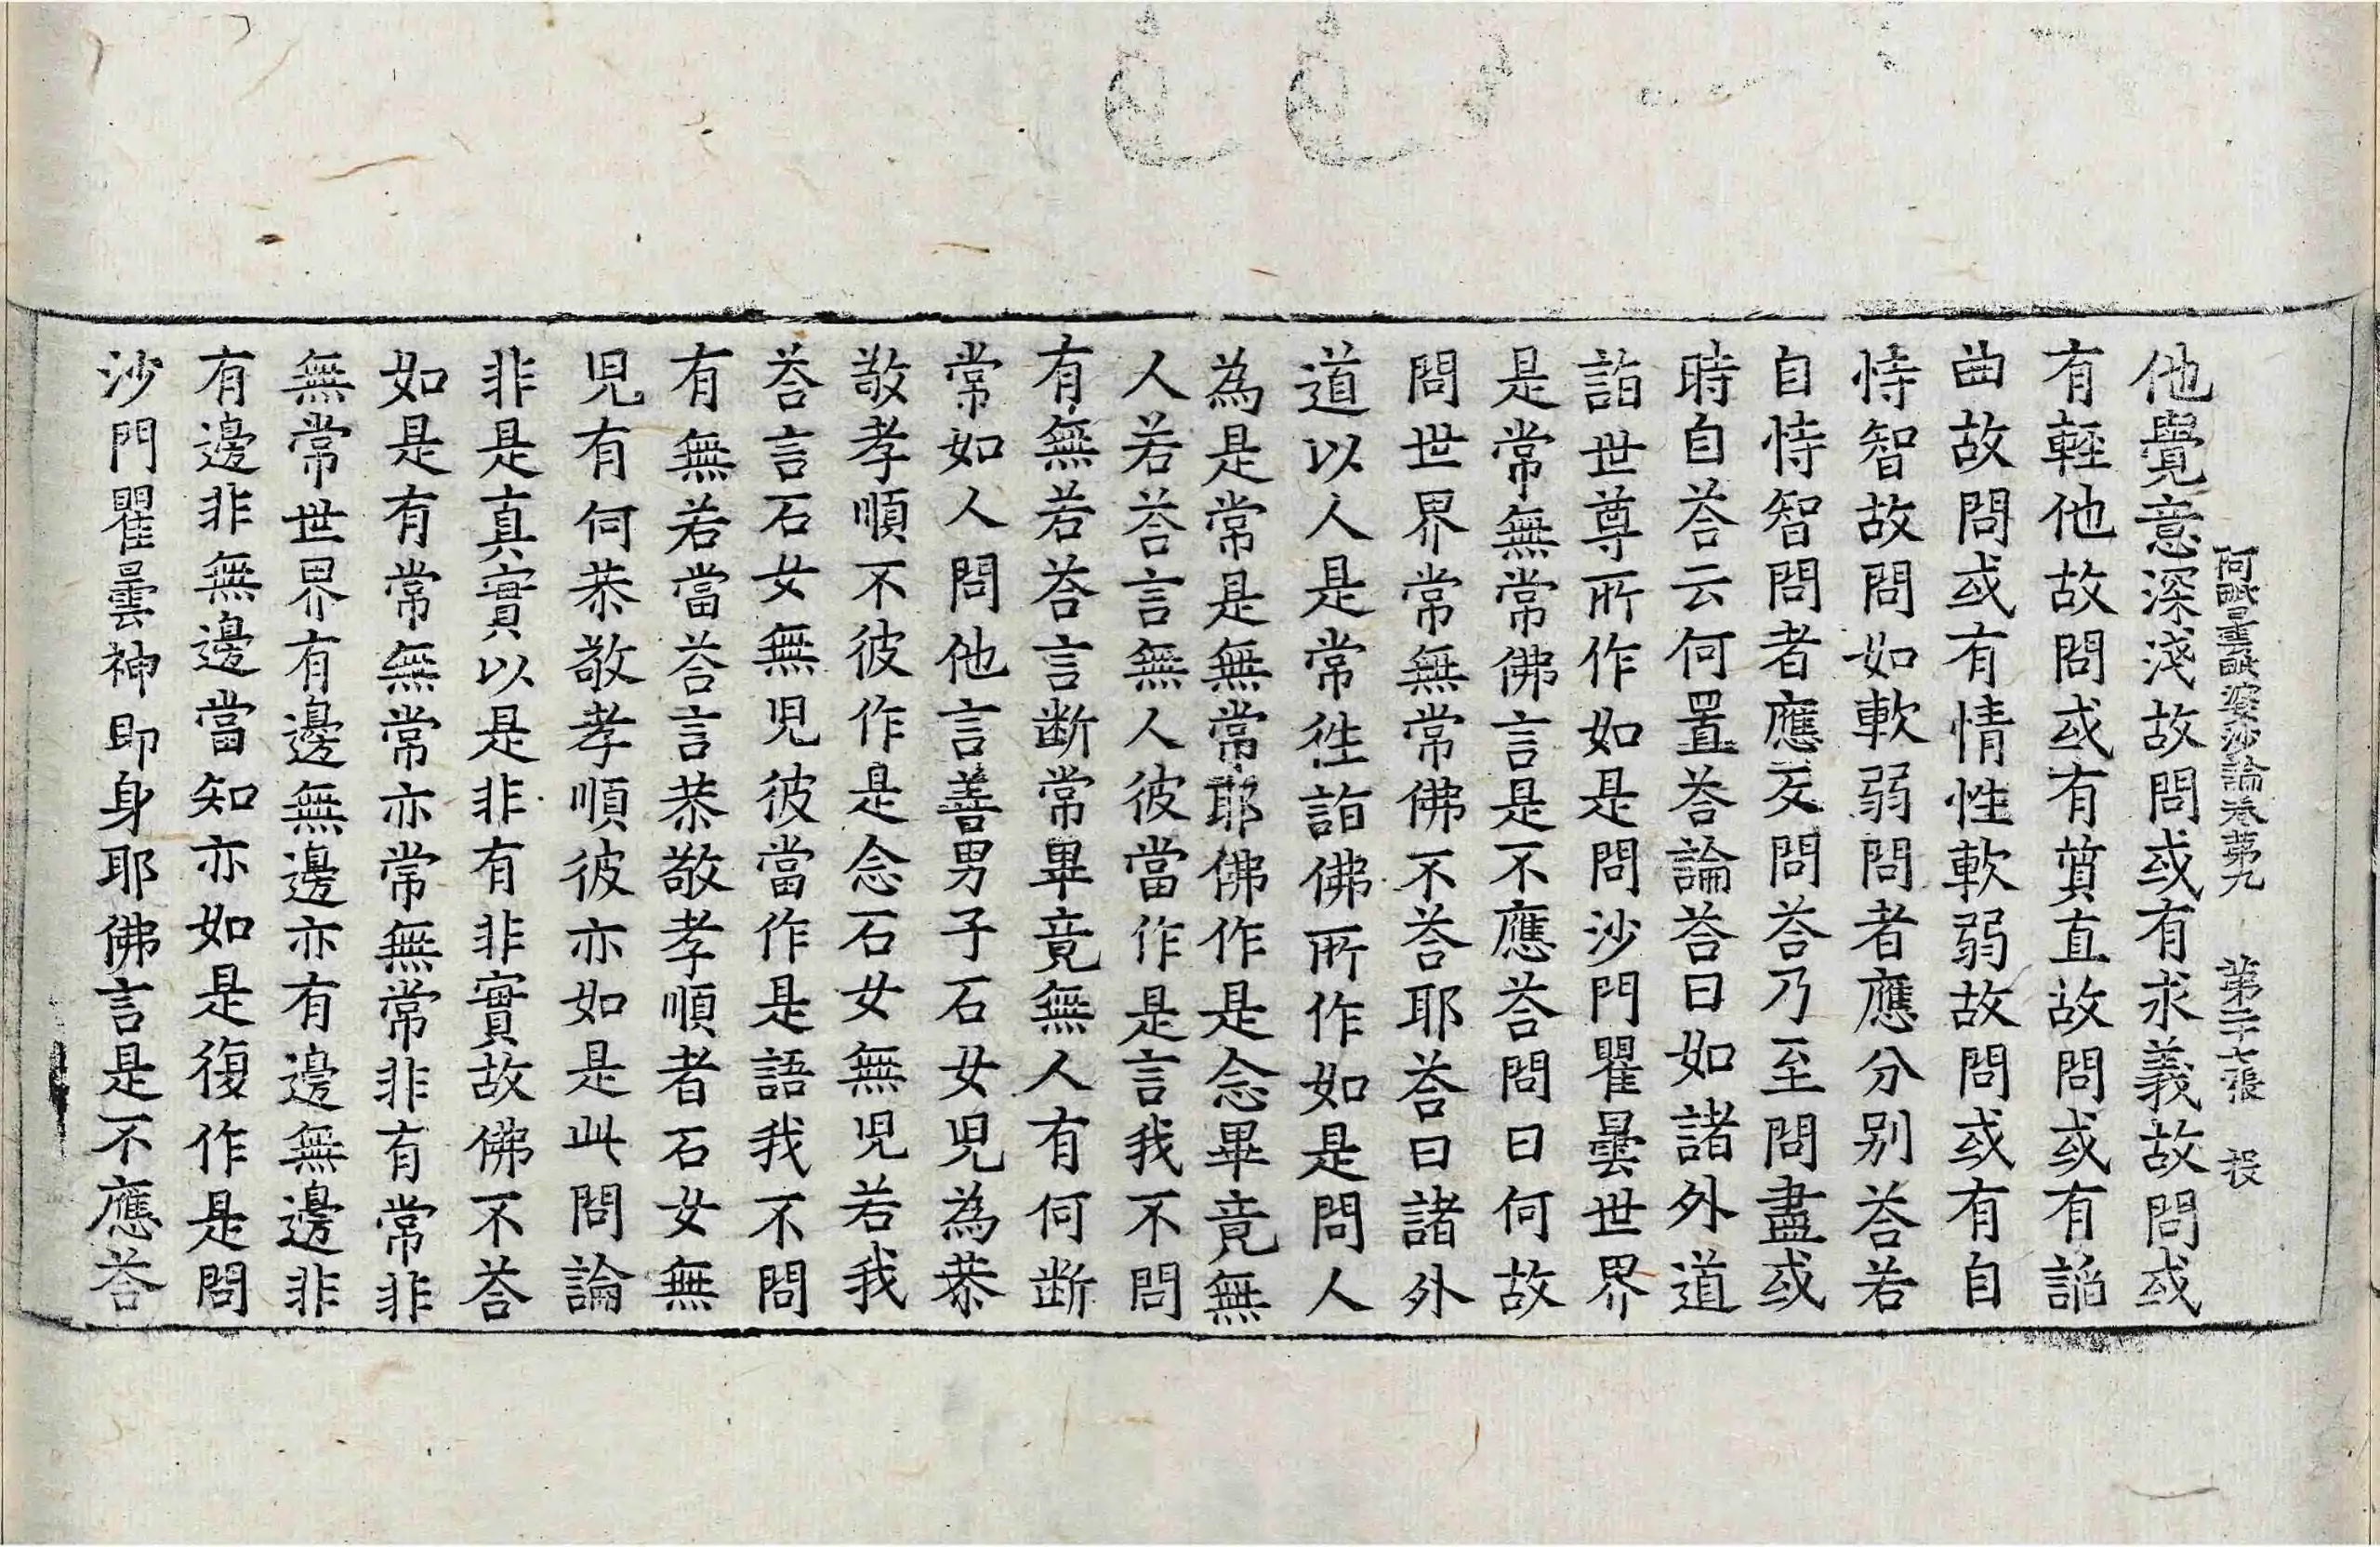 阿毗曇毗婆沙論卷第九 第二十七張 投
他覺意深淺故問或有求義故問或
有輕他故問或有質直故問或有諂
曲故問或有情性軟弱故問或有自
恃智故問如軟弱問者應分別荅若
自恃智問者應反問荅乃至問盡或
時自荅云何置荅論荅曰如諸外道
詣世尊所作如是問沙門瞿曇世界
是常無常佛言是不應荅問曰何故
問世界常無常佛不荅耶荅曰諸外
道以人是常徃詣佛所作如是問人
為是常是無常耶佛作是念畢竟無
人若荅言無人彼當作是言我不問
有無若荅言断常畢竟無人有何断
常如人問他言善男子石女兒為恭
敬孝順不彼作是念石女無兒若我
荅言石女無兒彼當作是語我不問
有無若當荅言恭敬孝順者石女無
兒有何恭敬孝順彼亦如是此問論
非是真實以是非有非實故佛不荅
如是有常無常亦常無常非有常非
無常世界有邊無邊亦有邊無邊非
有邊非無邊當知亦如是復作是問
沙門瞿曇神即身耶佛言是不應荅